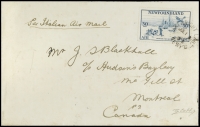 Per Italian Air Mail
NEWFOUNDLAND
Mr. J. S. Blackhall
c/o Hudson's Bay Coy
McGill St
Montreal
Canada